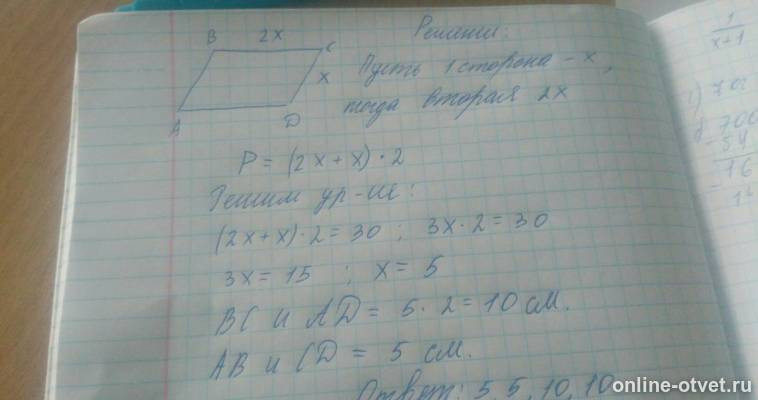 Решение:
B 2x C
Пусть 1 сторона - x,
x
тогда вторая 2x
A D
P = (2x+x)·2
Решим ур-ие:
(2x+x)·2=30 ; 3x·2=30
3x=15 ; x=5
BC и AD = 5·2=10 см.
AB и CD = 5 см.
Ответ: 5, 5, 10, 10
1
x+1
700
54
16
online-otvet.ru